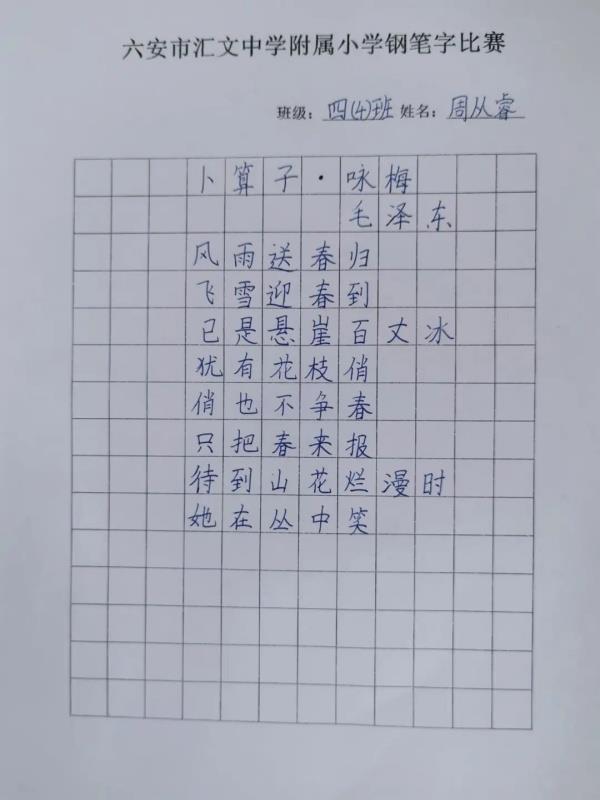 六安市汇文中学附属小学钢笔字比赛
班级：四(4)班 姓名：周从睿
卜算子·咏梅
毛泽东
风雨送春归
飞雪迎春到
已是悬崖百丈冰
犹有花枝俏
俏也不争春
只把春来报
待到山花烂漫时
她在丛中笑